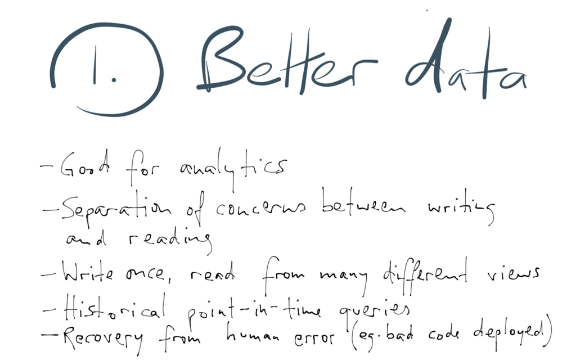 1. Better data
- Good for analytics
- Separation of concerns between writing
and reading
- Write once, read from many different views
- Historical point-in-time queries
- Recovery from human error (eg. bad code deployed)